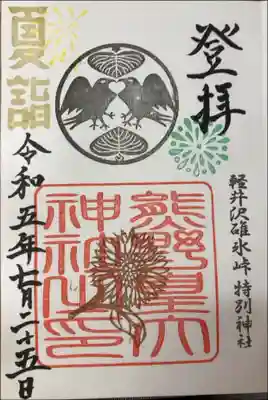 登拝
軽井沢碓氷峠 特別神社
熊野皇大神社之印
夏詣
令和五年七月二十五日